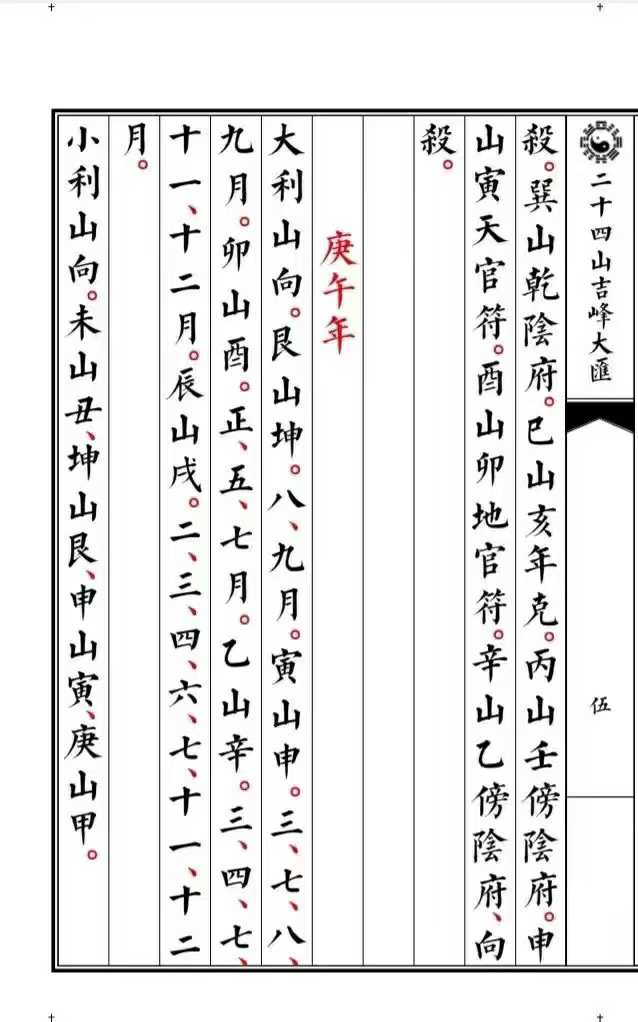 二十四山吉峰大匯
伍
殺。巽山乾陰府。巳山亥年克。丙山壬傍陰府。申
山寅天官符。酉山卯地官符。辛山乙傍陰府、向
殺。
庚午年
大利山向。艮山坤。八、九月。寅山申。三、七、八、
九月。卯山酉。正、五、七月。乙山辛。三、四、七、
十一、十二月。辰山戌。二、三、四、六、七、十一、十二
月。
小利山向。未山丑、坤山艮、申山寅、庚山甲。